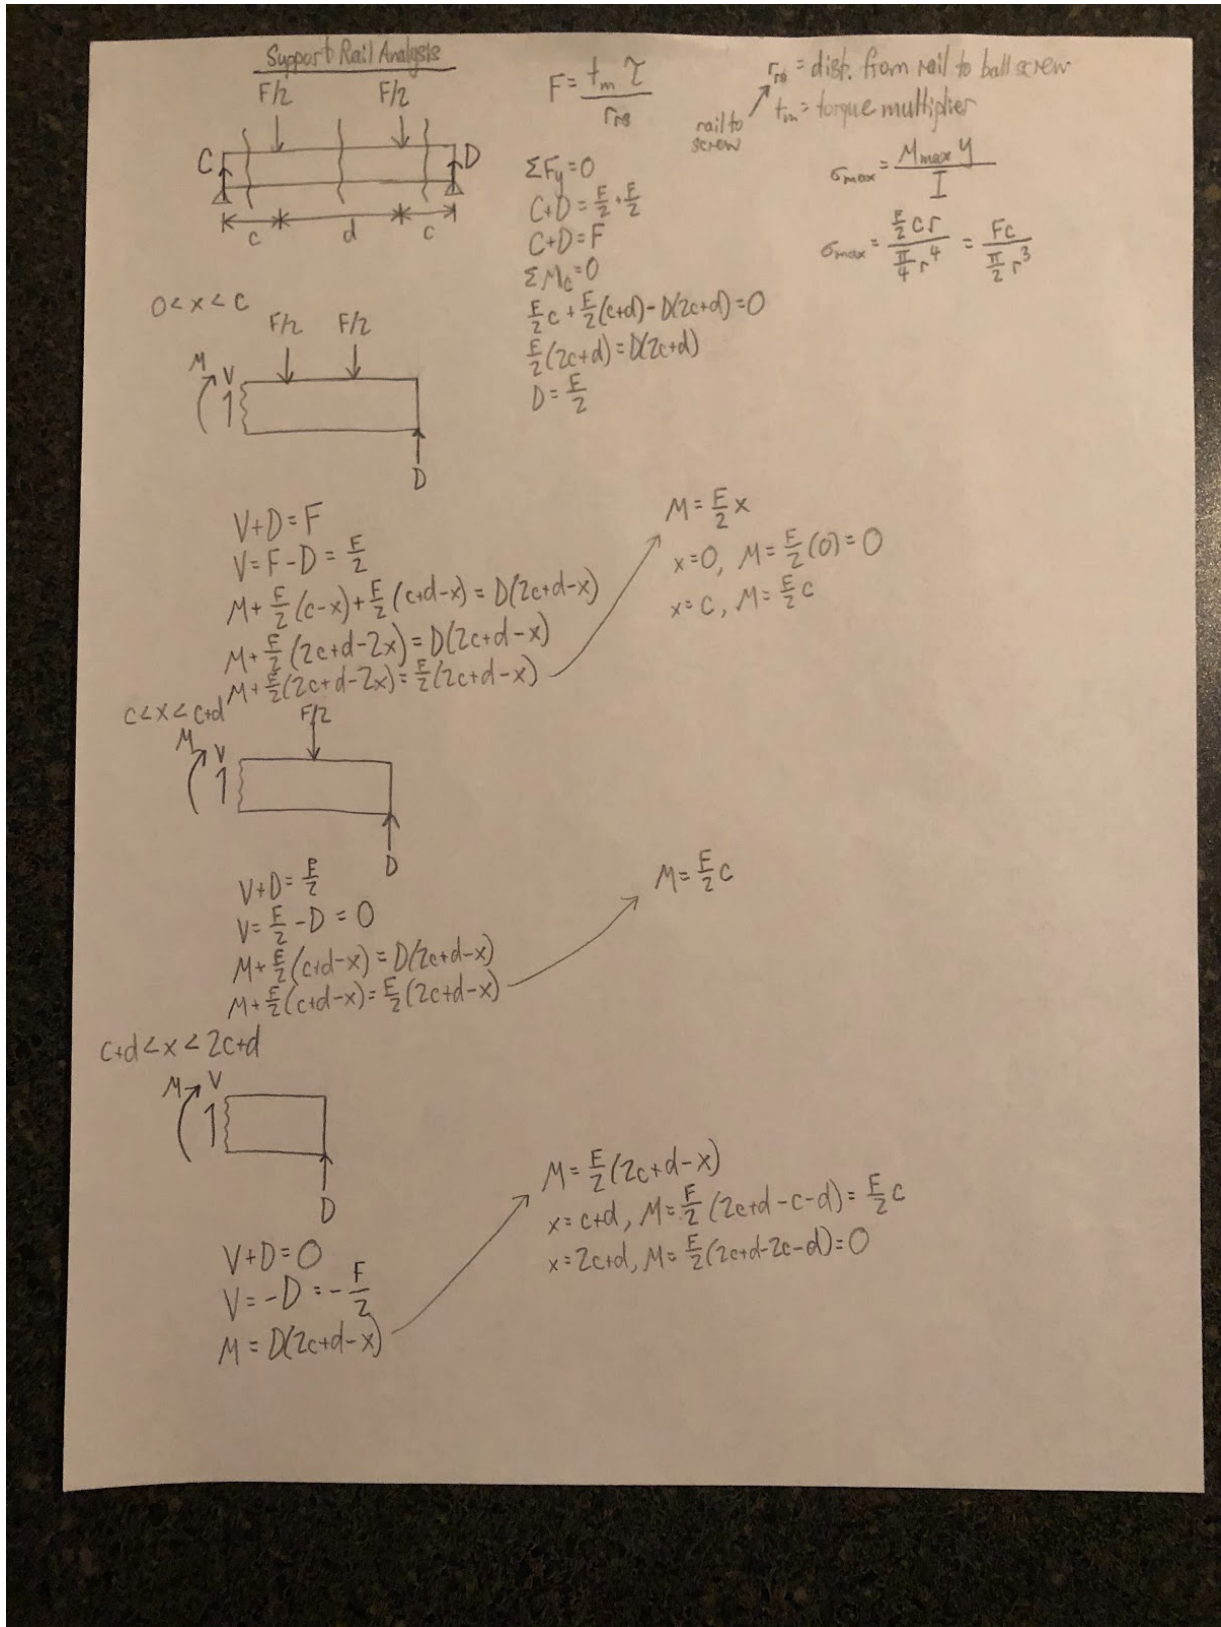 Support Rail Analysis
F/2 F/2
C D
c d c
F = t_m τ / r_rs
rail to screw
r_rs = dist. from rail to ball screw
t_m = torque multiplier
ΣF_y = 0
C+D = F/2 + F/2
C+D = F
ΣM_c = 0
F/2 c + F/2 (c+d) - D(2c+d) = 0
F/2 (2c+d) = D(2c+d)
D = F/2
σ_max = M_max y / I
σ_max = F/2 c r / π/4 r^4 = Fc / π/2 r^3
0 < x < c
F/2 F/2
M V
D
V+D = F
V = F-D = F/2
M + F/2 (c-x) + F/2 (c+d-x) = D(2c+d-x)
M + F/2 (2c+d-2x) = D(2c+d-x)
M + F/2 (2c+d-2x) = F/2 (2c+d-x)
M = F/2 x
x=0, M = F/2 (0) = 0
x=c, M = F/2 c
c < x < c+d
F/2
M V
D
V+D = F/2
V = F/2 - D = 0
M + F/2 (c+d-x) = D(2c+d-x)
M + F/2 (c+d-x) = F/2 (2c+d-x)
M = F/2 c
c+d < x < 2c+d
M V
D
V+D = 0
V = -D = -F/2
M = D(2c+d-x)
M = F/2 (2c+d-x)
x = c+d, M = F/2 (2c+d-c-d) = F/2 c
x = 2c+d, M = F/2 (2c+d-2c-d) = 0